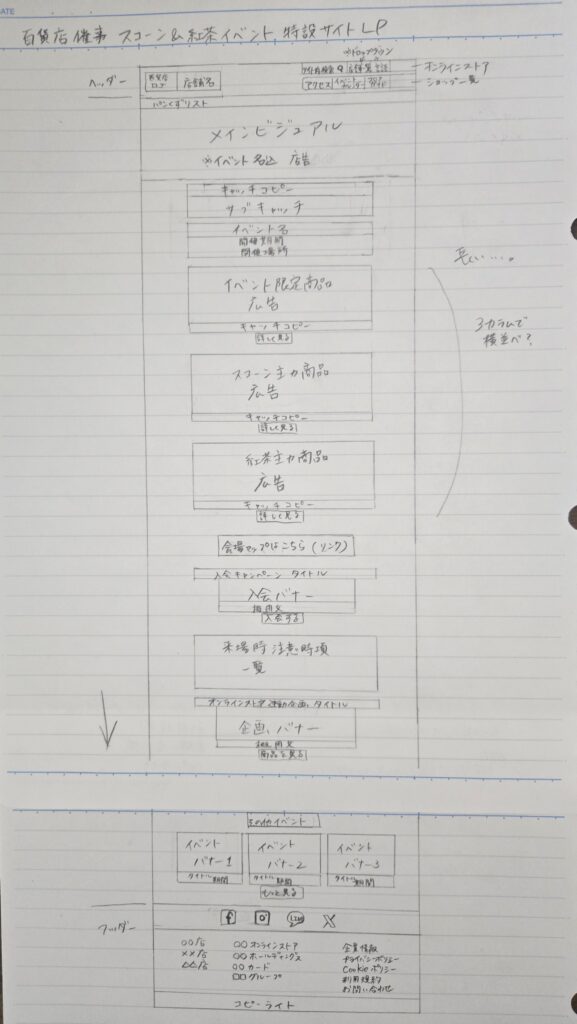 DATE
百貨店催事 スコーン&紅茶イベント 特設サイトLP
※ドロップダウン
ヘッダー
百貨店ロゴ
店舗名
サイト内検索
店舗一覧
オンラインストア
アクセス
イベント
ショップ一覧
パンくずリスト
メインビジュアル
※イベント名込 広告
キャッチコピー
サブキャッチ
イベント名
開催期間
開催場所
長い…。
イベント限定商品
広告
キャッチコピー
詳しく見る
3カラムで
横並べ?
スコーン主力商品
広告
キャッチコピー
詳しく見る
紅茶主力商品
広告
キャッチコピー
詳しく見る
会場マップはこちら(リンク)
入会キャンペーン タイトル
入会バナー
説明文
入会する
来場時注意時項
一覧
オンラインストア連動企画 タイトル
企画バナー
説明文
商品を見る
その他イベント
イベント
バナー1
タイトル 期間
イベント
バナー2
タイトル 期間
イベント
バナー3
タイトル 期間
もっと見る
フッター
f
LINE
X
○○店 ○○オンラインストア 企業情報
××店 ○○ホールディングス プライバシーポリシー
△△店 ○○カード Cookieポリシー
□□グループ 利用規約
お問い合わせ
コピーライト